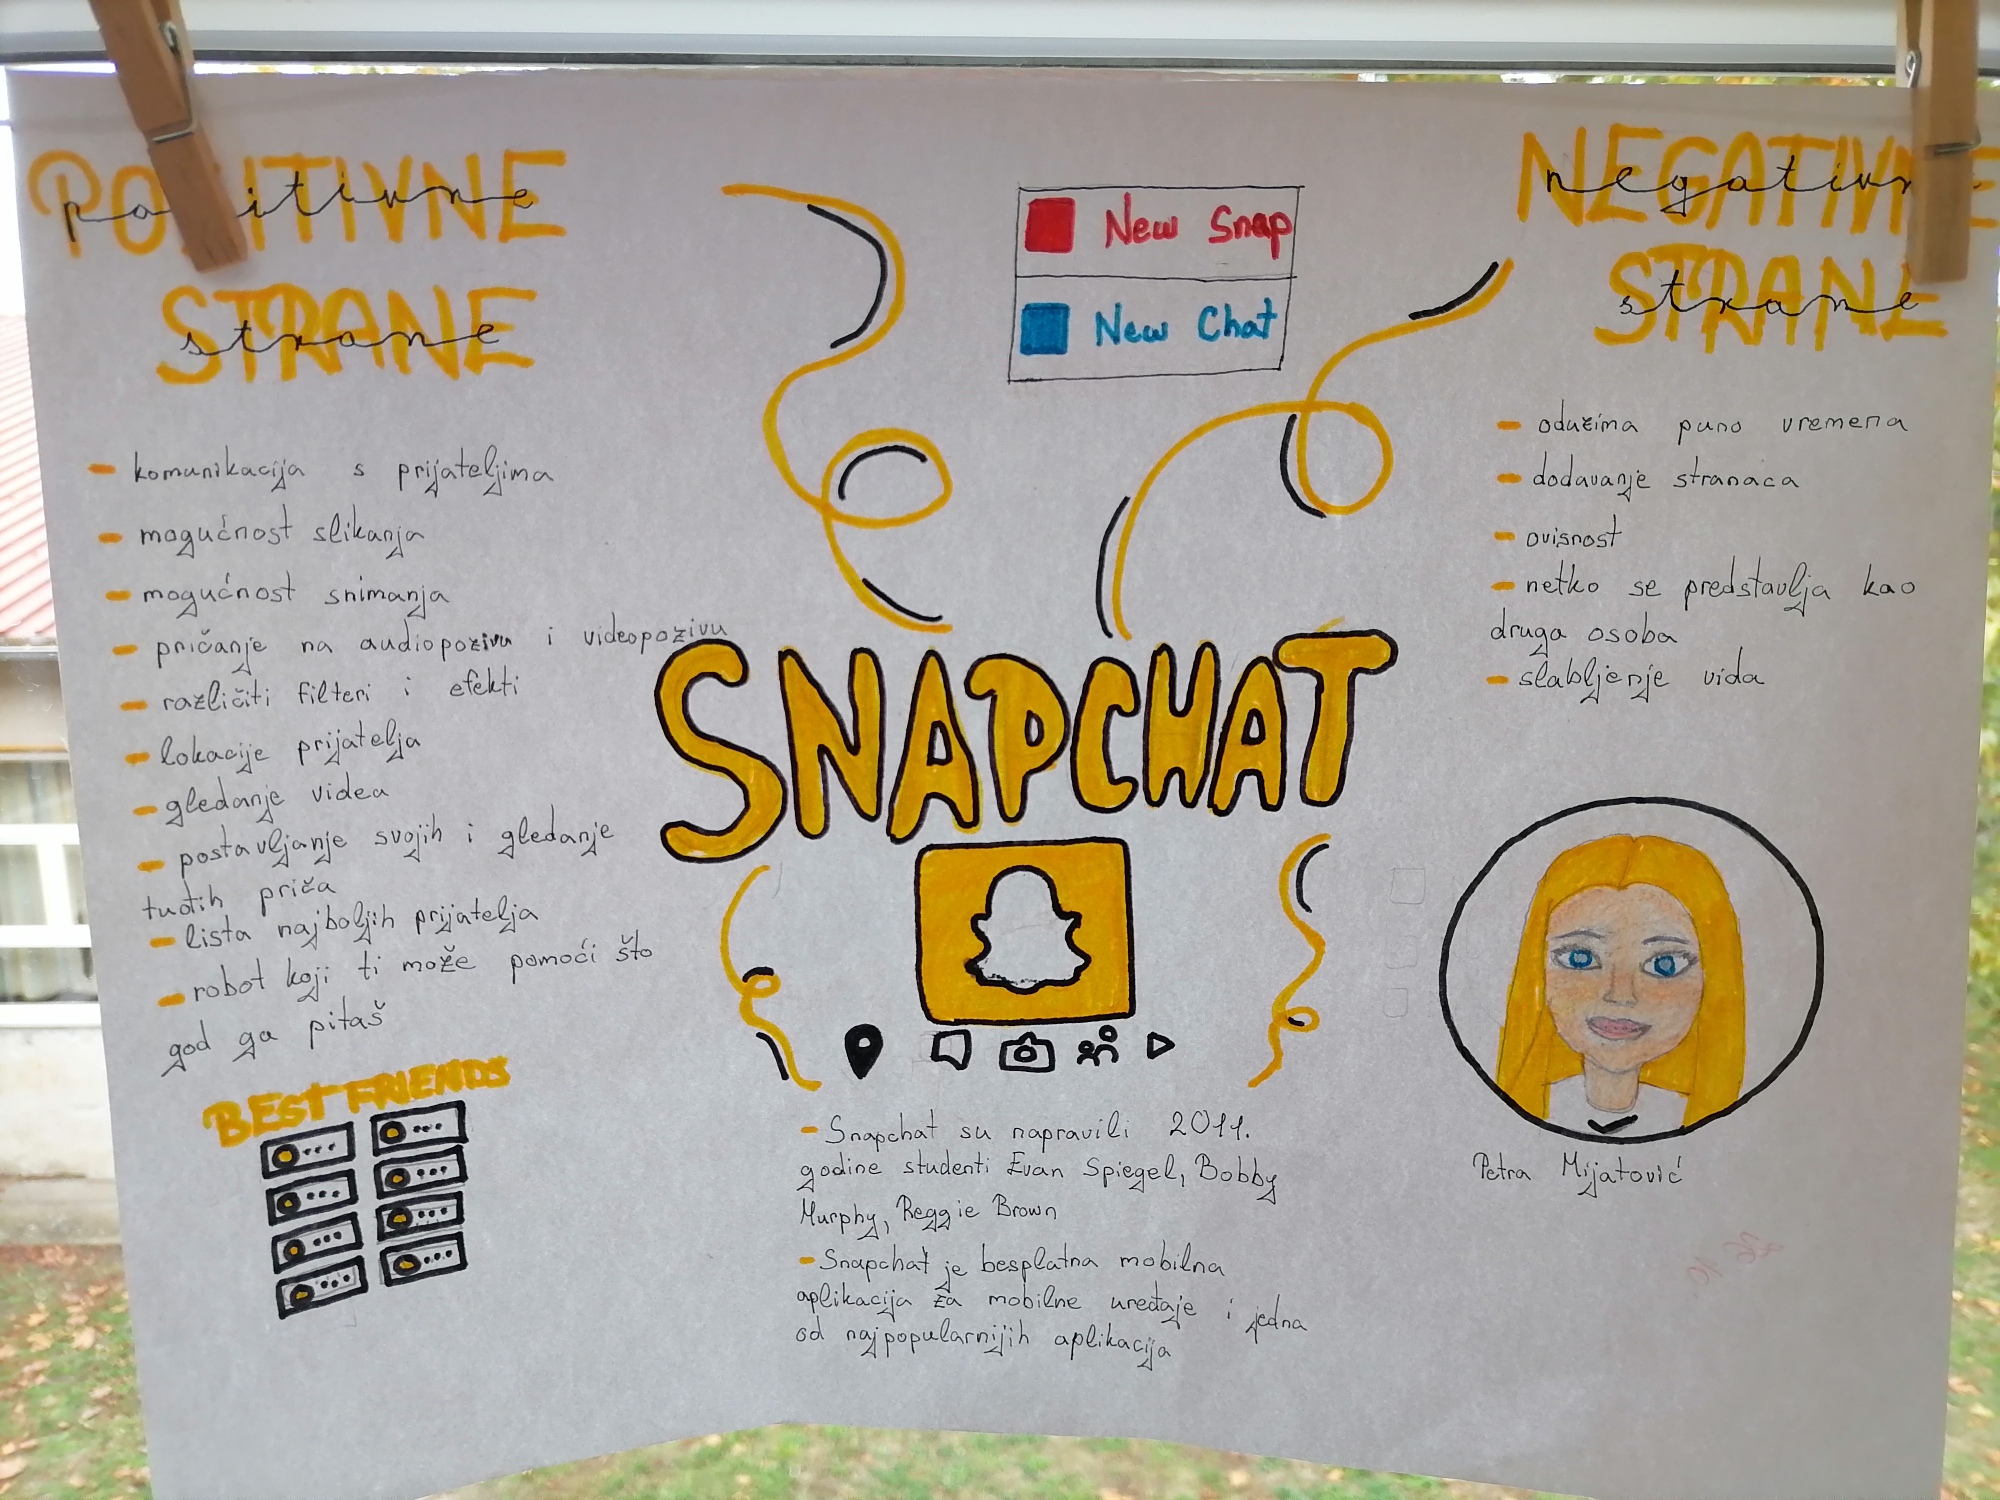 POZITIVNE
STRANE
pozitivne
strane
- komunikacija s prijateljima
- mogućnost slikanja
- mogućnost snimanja
- pričanje na audiopozivu i videopozivu
- različiti filteri i efekti
- lokacije prijatelja
- gledanje videa
- postavljanje svojih i gledanje
tuđih priča
- lista najboljih prijatelja
- robot koji ti može pomoći što
god ga pitaš
BEST FRIENDS
New Snap
New Chat
SNAPCHAT
- Snapchat su napravili 2011.
godine studenti Evan Spiegel, Bobby
Murphy, Reggie Brown
- Snapchat je besplatna mobilna
aplikacija za mobilne uređaje i jedna
od najpopularnijih aplikacija
NEGATIVNE
STRANE
negativne
strane
- oduzima puno vremena
- dodavanje stranaca
- ovisnost
- netko se predstavlja kao
druga osoba
- slabljenje vida
Petra Mijatović